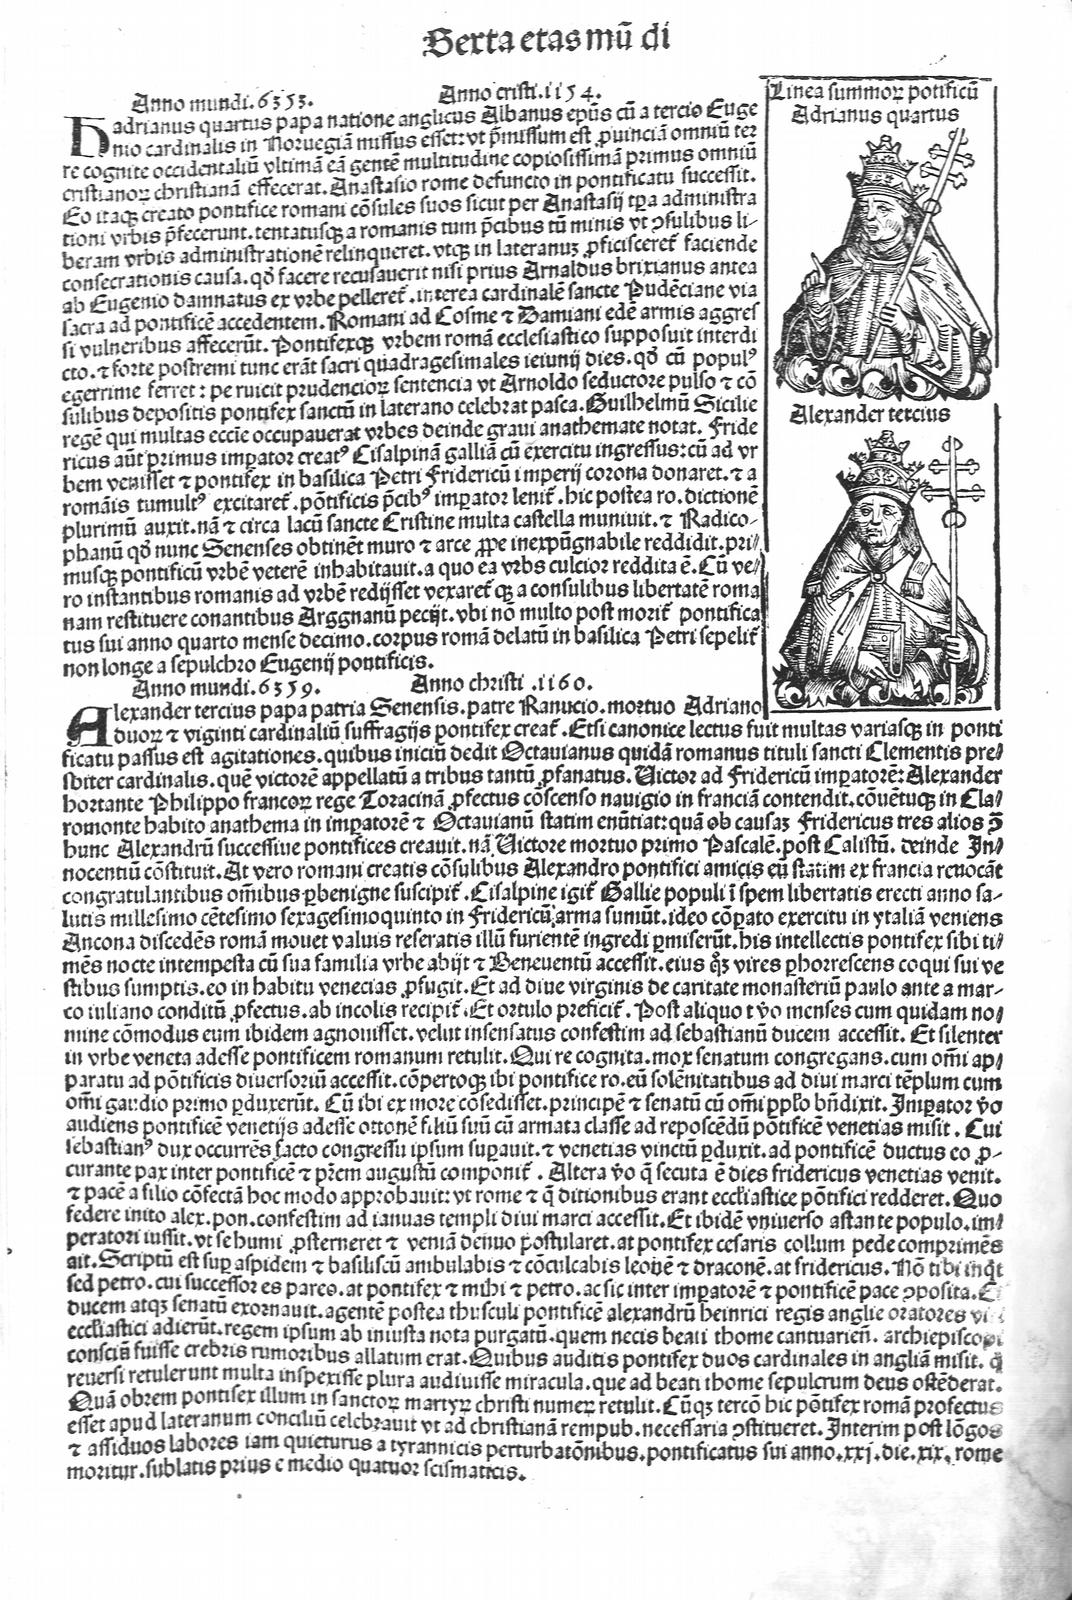 Sexta etas mũ di
Anno mundi.6353. Anno cristi.1154.
Linea summoꝝ pontificũ
Adrianus quartus
Hadrianus quartus papa natione anglicus Albanus epũs cũ a tercio Euge
nio cardinalis in Noruegiã missus esset: vt p̃missum est ꝓuinciã omniũ ter
re cognite occidentaliũ vltimã eã gentẽ multitudine copiosissimã primus omniũ
cristianoꝝ christianã effecerat. Anastasio rome defuncto in pontificatu successit.
Eo itaqꝫ creato pontifice romani cõsules suos sicut per Anastasij tꝑa administra
tioni vrbis p̃fecerunt. tentatusqꝫ a romanis tum p̃cibus tũ minis vt ↄsulibus li⸗
beram vrbis administrationẽ relinqueret. vtqꝫ in lateranuꝫ ꝓficisceret̃ faciende
consecrationis causa. qõ facere recusauerit nisi prius Arnaldus brixianus antea
ab Eugenio damnatus ex vrbe pelleret̃. interea cardinalẽ sancte Pudẽciane via
sacra ad pontificẽ accedentem. Romani ad Cosme ⁊ Damiani edẽ armis aggres
si vulneribus affecerũt. Pontifexqꝫ vrbem romã ecclesiastico supposuit interdi
cto. ⁊ forte postremi tunc erãt sacri quadragesimales ieiunij dies. qõ cũ popul⁹
egerrime ferret: peruicit prudencioꝝ sentencia vt Arnoldo seductore pulso ⁊ cõ
sulibus depositis pontifex sanctũ in laterano celebrat pasca. Guilhelmũ Sicilie
regẽ qui multas eccĩe occupauerat vrbes deinde graui anathemate notat. Fride
ricus aũt primus imꝑator creat⁹ Cisalpinã galliã cũ exercitu ingressus: cũ ad vr
bem venisset ⁊ pontifex in basilica Petri Fridericũ imperij corona donaret. ⁊ a
romãis tumult⁹ excitaret̃. põtificis p̃cib⁹ imꝑator lenit̃. hic postea ro. dictionẽ
plurimũ auxit. nã ⁊ circa lacũ sancte Cristine multa castella muniuit. ⁊ Radico⸗
phanũ qõ nunc Senenses obtinẽt muro ⁊ arce ꝓpe inexpũgnabile reddidit. pri⸗
musqꝫ pontificũ vrbẽ veterẽ inhabitauit. a quo ea vrbs culcior reddita ẽ. Cũ ve⸗
ro instantibus romanis ad vrbẽ redijsset vexaret̃ qꝫ a consulibus libertatẽ roma
nam restituere conantibus Arggnanũ pecijt. vbi nõ multo post morit̃ pontifica
tus sui anno quarto mense decimo. corpus romã delatũ in basilica Petri sepelit̃
non longe a sepulchro Eugenij pontificis.
Alexander tercius
Anno mundi.6359. Anno christi.1160.
Alexander tercius papa patria Senensis. patre Ranucio. mortuo Adriano
duoꝝ ⁊ viginti cardinaliũ suffragijs pontifex creat̃. Etsi canonice lectus fuit multas variasqꝫ in ponti
ficatu passus est agitationes. quibus iniciũ dedit Octauianus quidã romanus tituli sancti Clementis pre⸗
sbiter cardinalis. quẽ victorẽ appellatũ a tribus tantũ ꝓfanatus. Uictor ad Fridericũ imꝑatorẽ: Alexander
hortante Philippo francoꝝ rege Toracinã ꝓfectus cõscenso nauigio in franciã contendit. cõuẽtuqꝫ in Cla⸗
romonte habito anathema in imꝑatorẽ ⁊ Octauianũ statim enũtiat: quã ob causaꝫ Fridericus tres alios ꝯ̃
hunc Alexandrũ successiue pontifices creauit. nã Uictore mortuo primo Pascalẽ. post Calistũ. deinde In⸗
nocentiũ cõstituit. At vero romani creatis cõsulibus Alexandro pontifici amicis eũ statim ex francia reuocãt
congratulantibus omĩbus ꝑbenigne suscipit̃. Cisalpine igit̃ Gallie populi ĩ spem libertatis erecti anno sa⸗
lutis millesimo cẽtesimo sexagesimoquinto in Fridericũ arma sumũt. ideo cõꝑato exercitu in ytaliã veniens
Ancona discedẽs romã mouet valuis reseratis illũ furientẽ ingredi ꝑmiserũt. his intellectis pontifex sibi ti⸗
mẽs nocte intempesta cũ sua familia vrbe abijt ⁊ Beneuentũ accessit. eius qꝫ vires ꝑhorrescens coqui sui ve
stibus sumptis. eo in habitu venecias ꝓfugit. Et ad diue virginis de caritate monasteriũ paulo ante a mar⸗
co iuliano conditũ ꝓfectus. ab incolis recipit̃. Et ortulo preficit̃. Post aliquot ṽo menses cum quidam no⸗
mine cõmodus eum ibidem agnouisset. velut insensatus confestim ad sebastianũ ducem accessit. Et silenter
in vrbe veneta adesse pontificem romanum retulit. Qui re cognita. mox senatum congregans. cum omĩ ap⸗
paratu ad põtificis diuersoriũ accessit. cõpertoqꝫ ibi pontifice ro. eũ solẽnitatibus ad diui marci tẽplum cum
omĩ gaudio primo ꝑduxerũt. Cũ ibi ex more cõsedisset. principẽ ⁊ senatũ cũ omĩ ppĺo bñdixit. Imꝑator ṽo
audiens pontificẽ venetijs adesse ottonẽ filiũ suũ cũ armata classe ad reposcẽdũ põtificẽ venetias misit. Cui
sebastian⁹ dux occurrẽs facto congressu ipsum suꝑauit. ⁊ venetias vinctũ ꝑduxit. ad pontificẽ ductus eo ꝓ⸗
curante pax inter pontificẽ ⁊ p̃rem augustũ componit̃. Altera ṽo q̃ secuta ẽ dies fridericus venetias venit.
⁊ pacẽ a filio cõfectã hoc modo approbauit: vt rome ⁊ q̃ ditionibus erant eccĺiastice põtifici redderet. Quo
federe inito alex. pon. confestim ad ianuas templi diui marci accessit. Et ibidẽ vniuerso astante populo. im⸗
peratori iussit. vt se humi ꝓsterneret ⁊ veniã denuo postularet. at pontifex cesaris collum pede comprimẽs
ait. Scriptũ est suꝑ aspidem ⁊ basiliscũ ambulabis ⁊ cõculcabis leonẽ ⁊ draconẽ. at fridericus. Nõ tibi inq̃t
sed petro. cui successor es pareo. at pontifex ⁊ mihi ⁊ petro. ac sic inter imꝑatorẽ ⁊ pontificẽ pace ↄposita.
ducem atqꝫ senatũ exornauit. agentẽ postea thusculi pontificẽ alexandrũ heinrici regis anglie oratores
eccĺiastici adierũt. regem ipsum ab iniusta nota purgatũ. quem necis beati thome cantuarieñ. archiepiscopi
consciũ fuisse crebris rumoribus allatum erat. Quibus auditis pontifex duos cardinales in angliã misit. q̃
reuersi retulerunt multa inspexisse plura audiuisse miracula. que ad beati thome sepulcrum deus ostẽderat.
Quã obrem pontifex illum in sanctoꝝ martyꝝ christi numeꝝ retulit. Cũqꝫ tercõ hic pontifex romã profectus
esset apud lateranum conciliũ celebrauit vt ad christianã rempub. necessaria ↄstitueret. Interim post lõgos
⁊ assiduos labores iam quieturus a tyrannicis perturbatõnibus. pontificatus sui anno. xxj. die. xix. rome
moritur. sublatis prius e medio quatuor scismaticis.